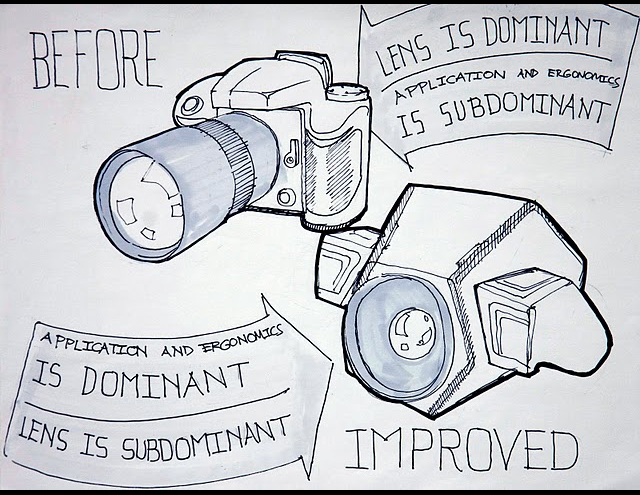 BEFORE
LENS IS DOMINANT
APPLICATION AND ERGONOMICS
IS SUBDOMINANT
APPLICATION AND ERGONOMICS
IS DOMINANT
LENS IS SUBDOMINANT
IMPROVED